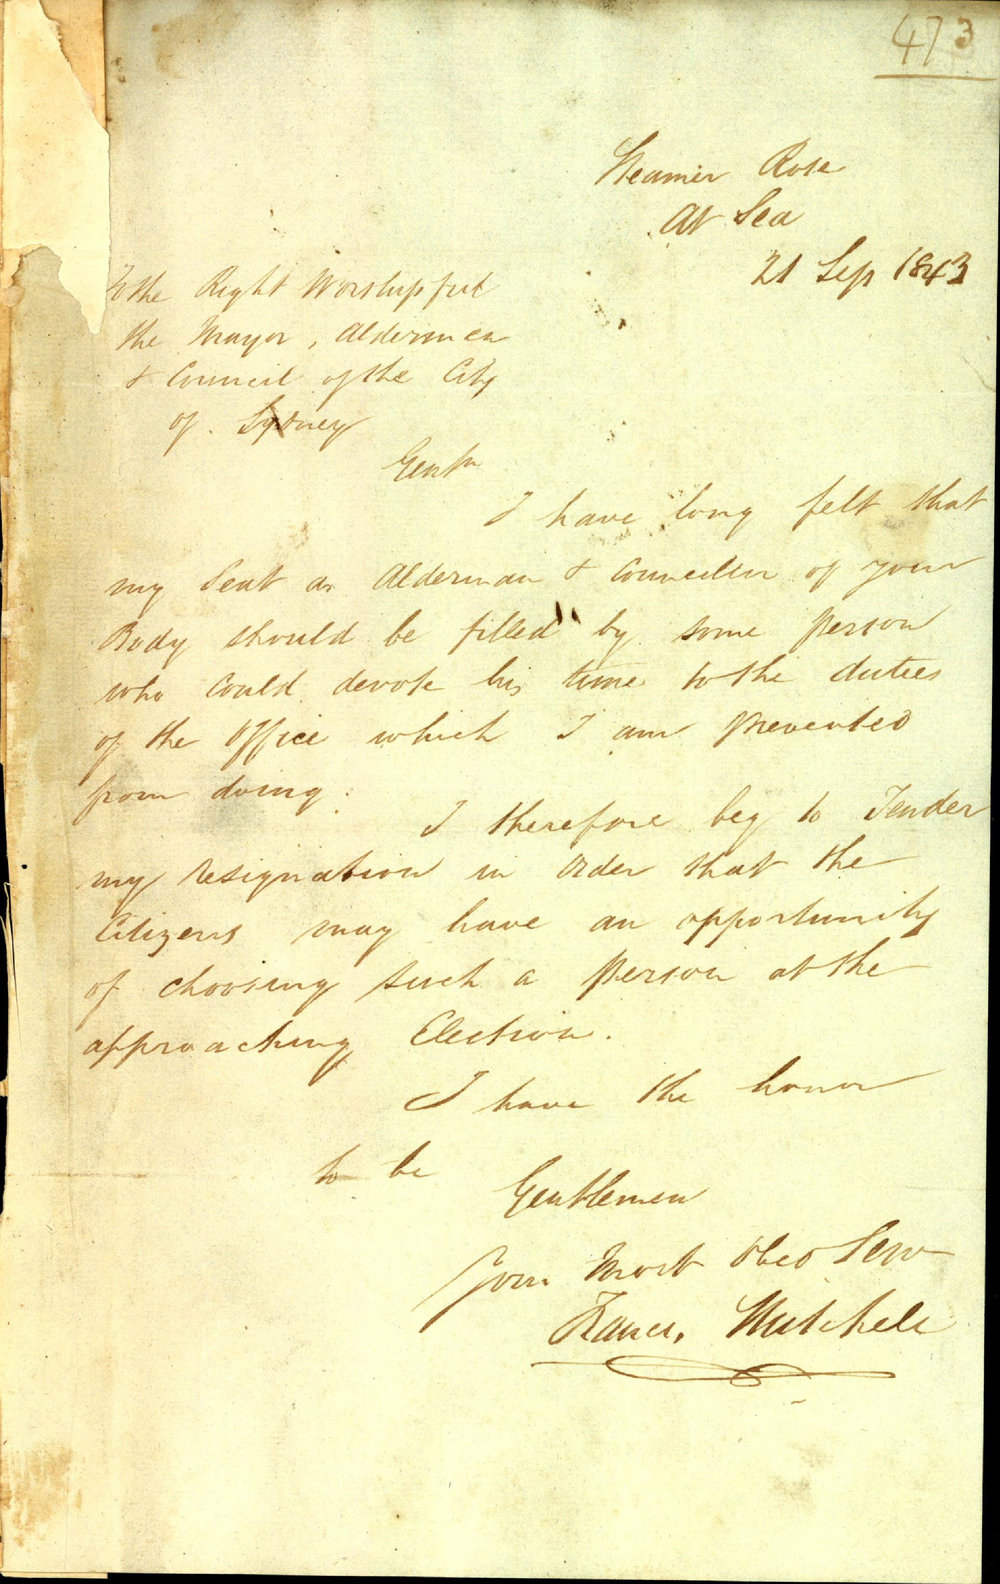 473
Steamer Rose
At Sea
21 Sep 1843
To the Right Worshipful
the Mayor, Aldermen
& Council of the City
of Sydney
Gentn
I have long felt that
my Seat as Alderman & Councillor of your
Body should be filled by some person
who could devote his time to the duties
of the Office which I am prevented
from doing.
I therefore beg to Tender
my resignation in Order that the
Citizens may have an opportunity
of choosing such a person at the
approaching Election.
I have the honor
to be
Gentlemen
Your Most Obed Serv
Francis Mitchell